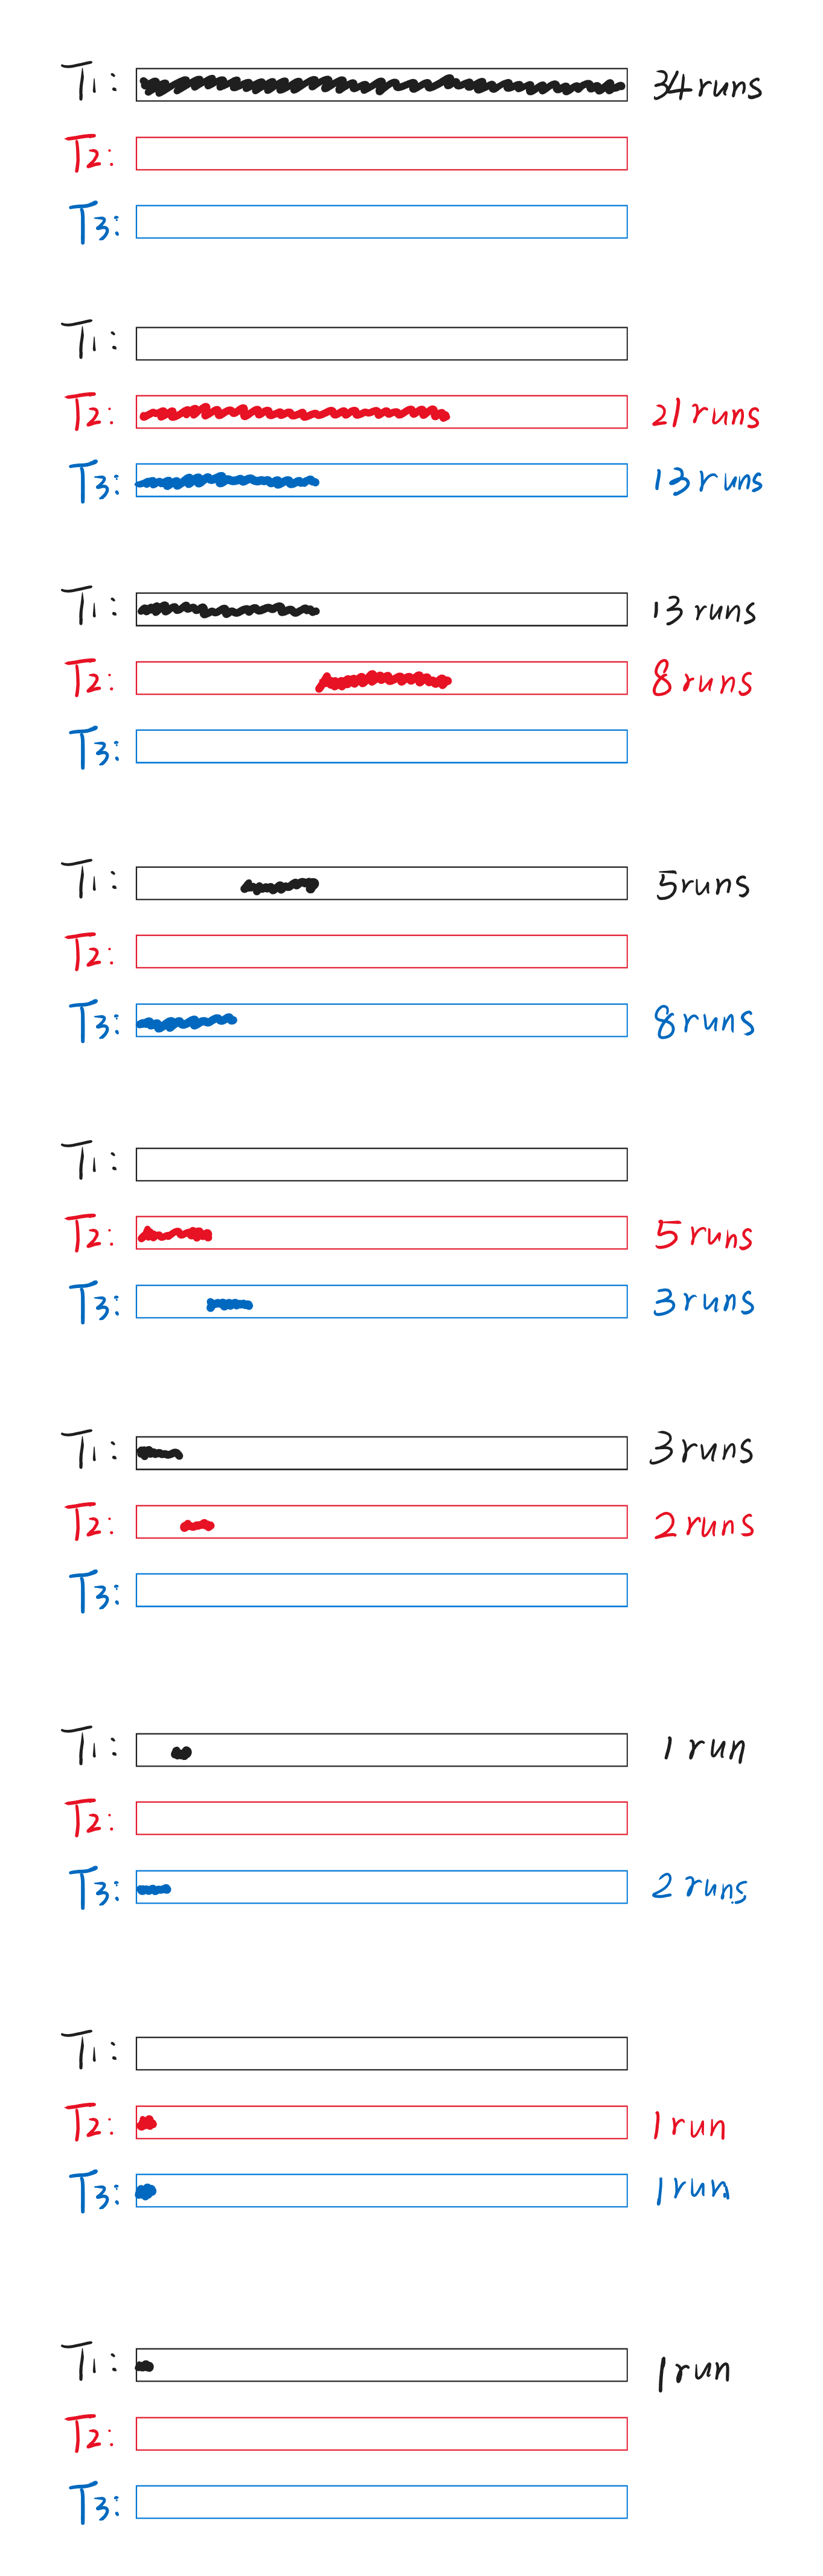 T1: 34 runs
T2:
T3:
T1:
T2: 21 runs
T3: 13 runs
T1: 13 runs
T2: 8 runs
T3:
T1: 5 runs
T2:
T3: 8 runs
T1:
T2: 5 runs
T3: 3 runs
T1: 3 runs
T2: 2 runs
T3:
T1: 1 run
T2:
T3: 2 runs
T1:
T2: 1 run
T3: 1 run
T1: 1 run
T2:
T3: